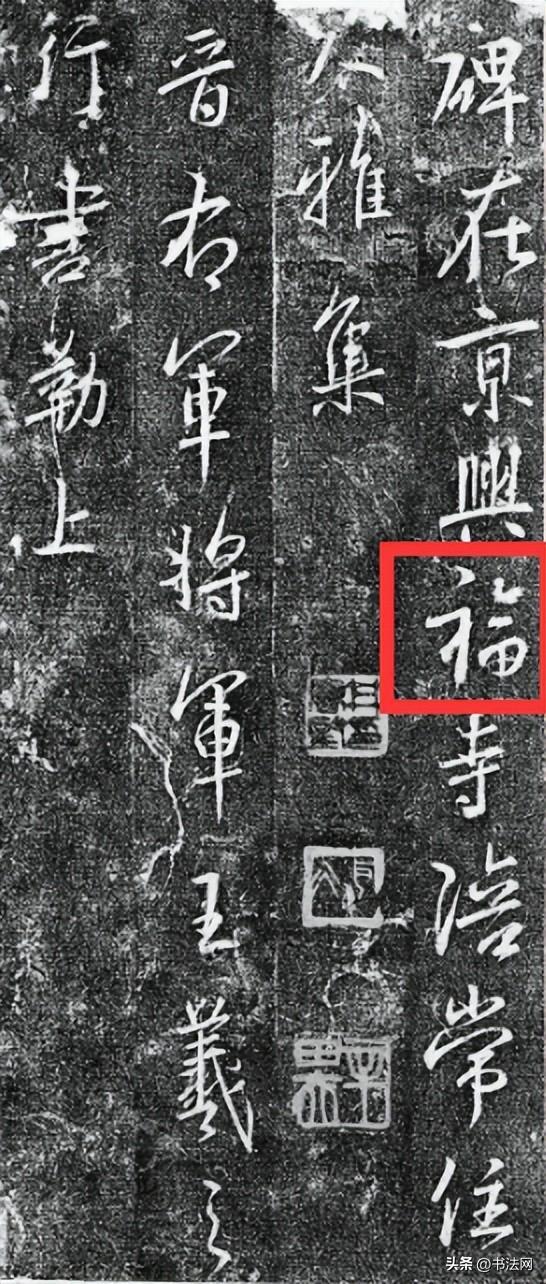 碑在京興福寺陪常住
大雅集
晉右軍將軍王羲之
行書勒上
头条 @书法网